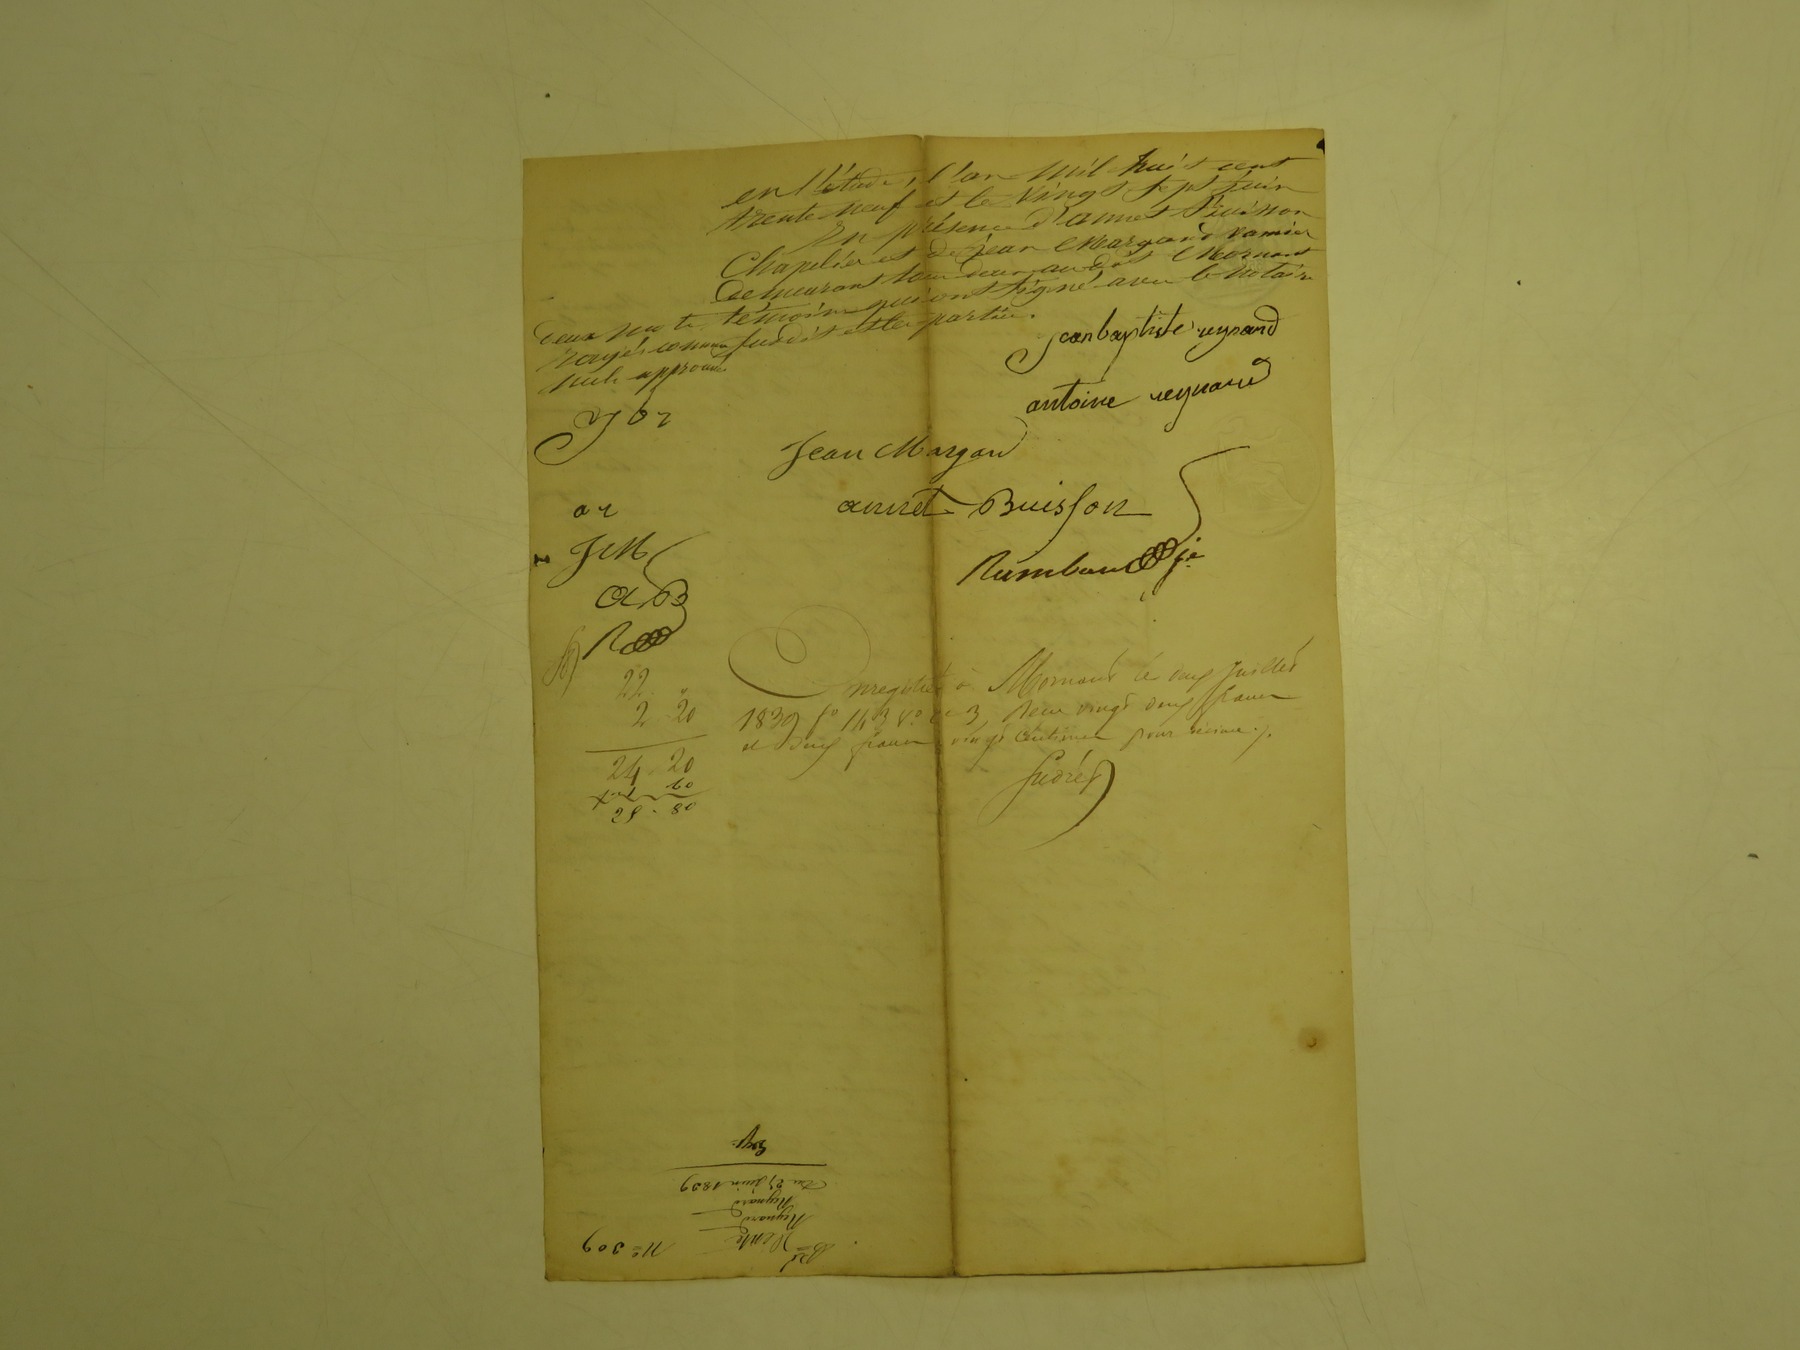 en l'étude, l'an mil huit cent
trente neuf et le vingt sept juin
En présence d'annet Buisson
Chapelier et de jean Margand
demeurant tous deux audit Mornant
témoins qui ont signé avec le notaire
susdit et les parties.
deux mots
rayés comme
nuls approuvés
jean baptiste reynard
antoine reynard
Jean Margand
annet Buisson
j b r
a r
J M
a B
R
22 "
2 20
24 20
Enregistré à Mornant le deux juillet
1839 fo 143 vo ce 3, Reçu vingt deux francs
et deux francs vingt centimes pour décime.
No 309
Vente
Reynard
Reynard
du 27 juin 1839